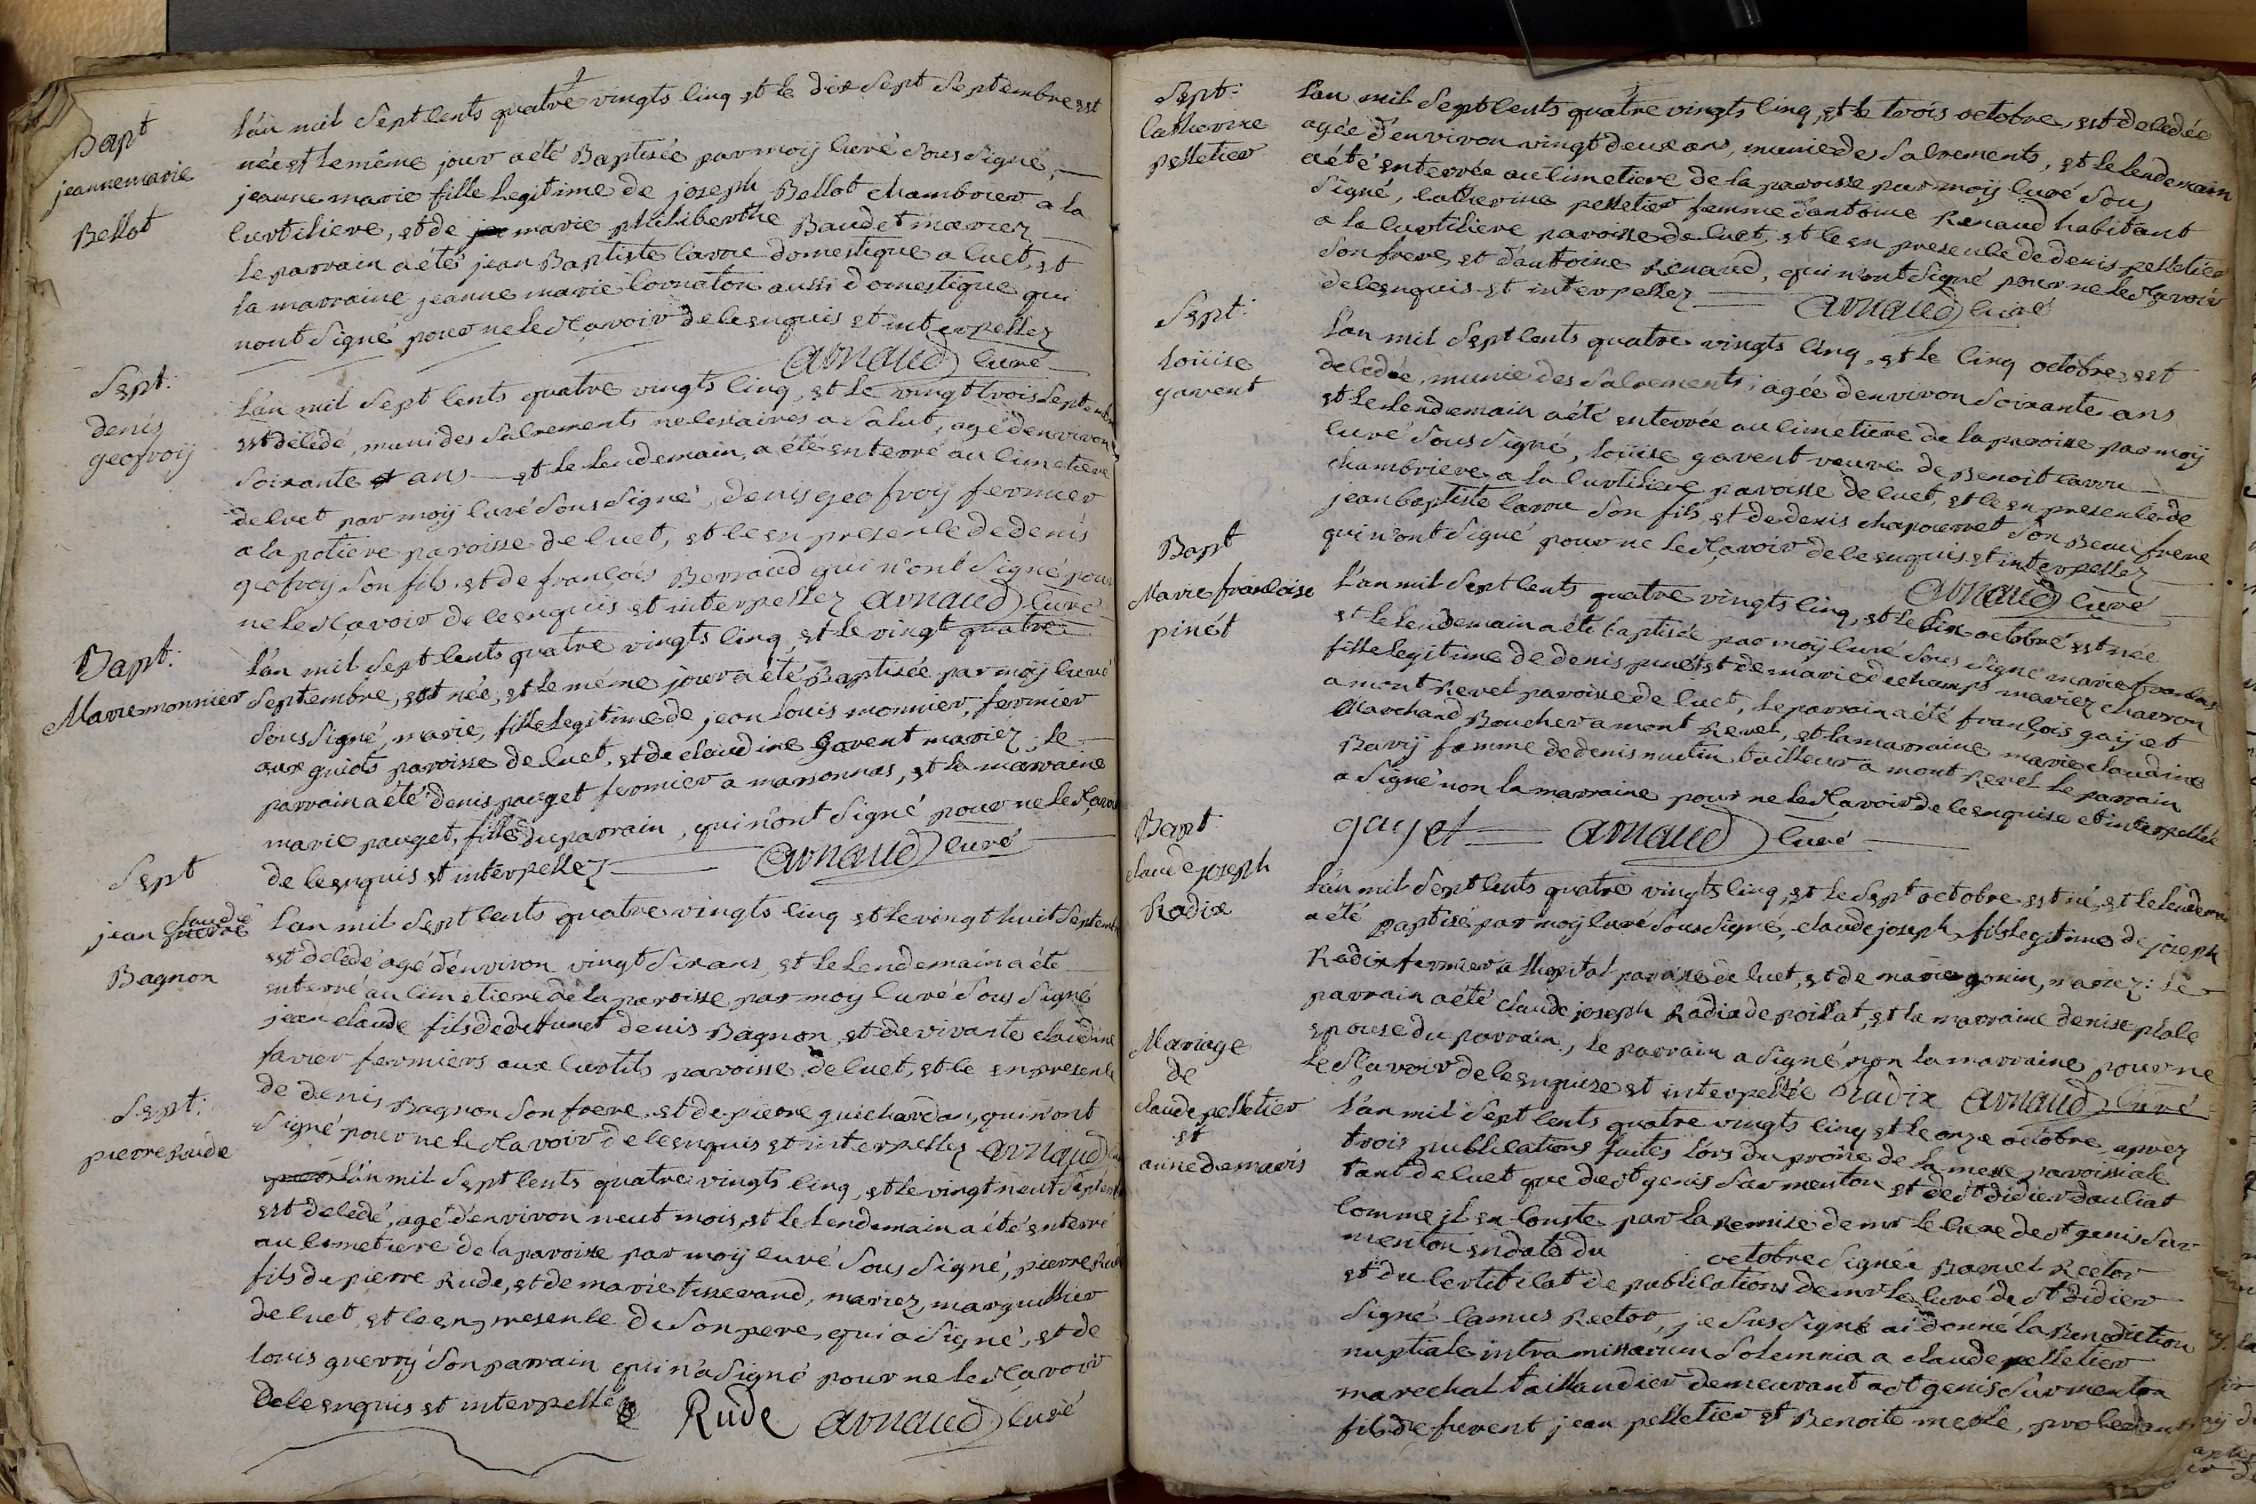 Bapt
jeanne marie
Bellot
L'an mil Sept Cents quatre vingts Cinq et le dix Sept Septembre est
née et le même jour a été Baptisée par moÿ Curé Sous Signé,
jeanne marie fille Legitime de joseph Bellot chambrier a la
Curtiliere, et de marie philiberthe Baudet mariez
Le parrain a été jean Baptiste Carru domestique a Cuet, et
la marraine jeanne marie Cornaton aussi domestique qui
nont Signé pour ne le Sçavoir de Ce enquis et interpellez
arnaud Curé
Sept:
denis
geofroÿ
L'an mil Sept Cents quatre vingts Cinq, et Le vingt trois Septembre
est décédé, muni des Sacrements necessaires a Salut, agé d'environ
Soixante ans et le lendemain, a été enterré au Cimetiere
de Cuet par moÿ Curé Sous Signé, denis geofroÿ fermier
a la potiere paroisse de Cuet, et Ce en presence de denis
geofroy Son fils et de françois Berraud qui n'ont Signé pour
ne le Sçavoir de Ce enquis et interpellez arnaud Curé
Bapt:
Marie monnier
L'an mil Sept Cents quatre vingts Cinq, et Le vingt quatre
Septembre, est née, et le même jour a été Baptisée par moÿ Curé
Sous Signé, marie, fille Legitime de jean Louis monnier, fermier
aux guiots paroisse de Cuet, et de claudine Gavent mariez, Le
parrain a été denis pauget fermier a marsonnas, et la marraine
marie pauget, fille du parrain, qui n'ont Signé pour ne le Sçavoir
de Ce enquis et interpellez arnaud Curé
Sept
jean claude
Bagnon
L'an mil Sept Cents quatre vingts Cinq et Le vingt huit Septembre
est décédé agé d'environ vingt Six ans, et Le Lendemain a été
enterré au Cimetiere de la paroisse par moÿ Curé Sous Signé
jean claude fils de defunct denis Bagnon, et de vivante claudine
favier fermiers aux Curtils paroisse de Cuet, et Ce en presence
de denis Bagnon Son frere, et de pierre guichardan, qui n'ont
Signé pour ne le Sçavoir de Ce enquis et interpellez arnaud
Sept:
pierre Rude
L'an mil Sept Cents quatre vingts Cinq, et Le vingt neuf Septembre
est décédé, agé d'environ neuf mois, et le Lendemain a été enterré
au Cimetiere de la paroisse par moÿ Curé Sous Signé, pierre Rude
fils de pierre Rude, et de marie tisserand, mariez, marguillier
de Cuet, et Ce en presence de Son pere, qui a Signé, et de
Louis guerrÿ Son parrain qui n'a Signé pour ne le Sçavoir
de Ce enquis et interpellé
Rude arnaud Curé
Sept:
Catherine
pelletier
L'an mil Sept Cents quatre vingts Cinq, et le trois octobre, est decedée
agée d'environ vingt deux ans, munie des Sacrements, et Le Lendemain
a été enterrée au Cimetiere de la paroisse par moÿ Curé Sous
Signé, Catherine pelletier femme d'antoine Renaud habitant
a la Curtiliere paroisse de Cuet, et Ce en presence de denis pelletier
Son frere, et d'antoine Renaud, qui n'ont Signé pour ne le Sçavoir
de Ce enquis et interpellez arnaud Curé
Sept:
Loüise
gavent
L'an mil Sept Cents quatre vingts Cinq, et Le Cinq octobre, est
decedée, munie des Sacrements, agée d'environ Soixante ans
et Le Lendemain a été enterrée au Cimetiere de la paroisse par moÿ
Curé Sous Signé, Loüise gavent veuve de Benoit Carru
chambriere a la Curtiliere paroisse de Cuet, et Ce en presence de
jean baptiste Carru Son fils, et de denis chapourret Son Beau frere
qui n'ont Signé pour ne le Sçavoir de Ce enquis et interpellez
arnaud Curé
Bapt
Marie françoise
pinét
L'an mil Sept Cents quatre vingts Cinq, et le Six octobre est née
et le Lendemain a été baptisée par moÿ Curé Sous Signé marie françoise
fille Legitime de denis pinet et de marie dechamps mariez charron
a mont Revel paroisse de Cuet, Le parrain a été françois gaÿet
Marchand Boucher a mont Revel, et la marraine marie claudine
Ravÿ femme de denis mutin tailleur a mont Revel Le parrain
a Signé non la marraine pour ne le Sçavoir de Ce enquise et interpellée
gayet arnaud Curé
Bapt
claude joseph
Radix
L'an mil Sept Cents quatre vingts Cinq, et Le Sept octobre est né, et Le Lendemain
a été Baptisé par moÿ Curé Sous Signé, claude joseph, fils Legitime de joseph
Radix fermier a lhopital paroisse de Cuet, et de marie gonin, mariez: Le
parrain a été claude joseph Radix de poillat, et la marraine denise place
epouse du parrain, Le parrain a Signé non la marraine pour ne
le Sçavoir de Ce enquise et interpellée Radix arnaud Curé
Mariage
de
claude pelletier
et
anne demaris
L'an mil Sept Cents quatre vingts Cinq et Le onze octobre aprez
trois publications faites Lors du prône de la messe paroissiale
tant de Cuet que de st genis Sur menton et de st didier daussiat
Comme il en Conste par la Remise de mr le Curé de st genis Sur
menton en date du octobre Signée Baruel Rector
et du Certificat de publications de mr le Curé de st didier
Signé Camus Rector, je Sus Signé ai donné la Benediction
nuptiale intra missarum Solemnia a claude pelletier
marechal taillandier demeurant a st genis Sur menton
fils de furent jean pelletier et Benoite mesle, procedant